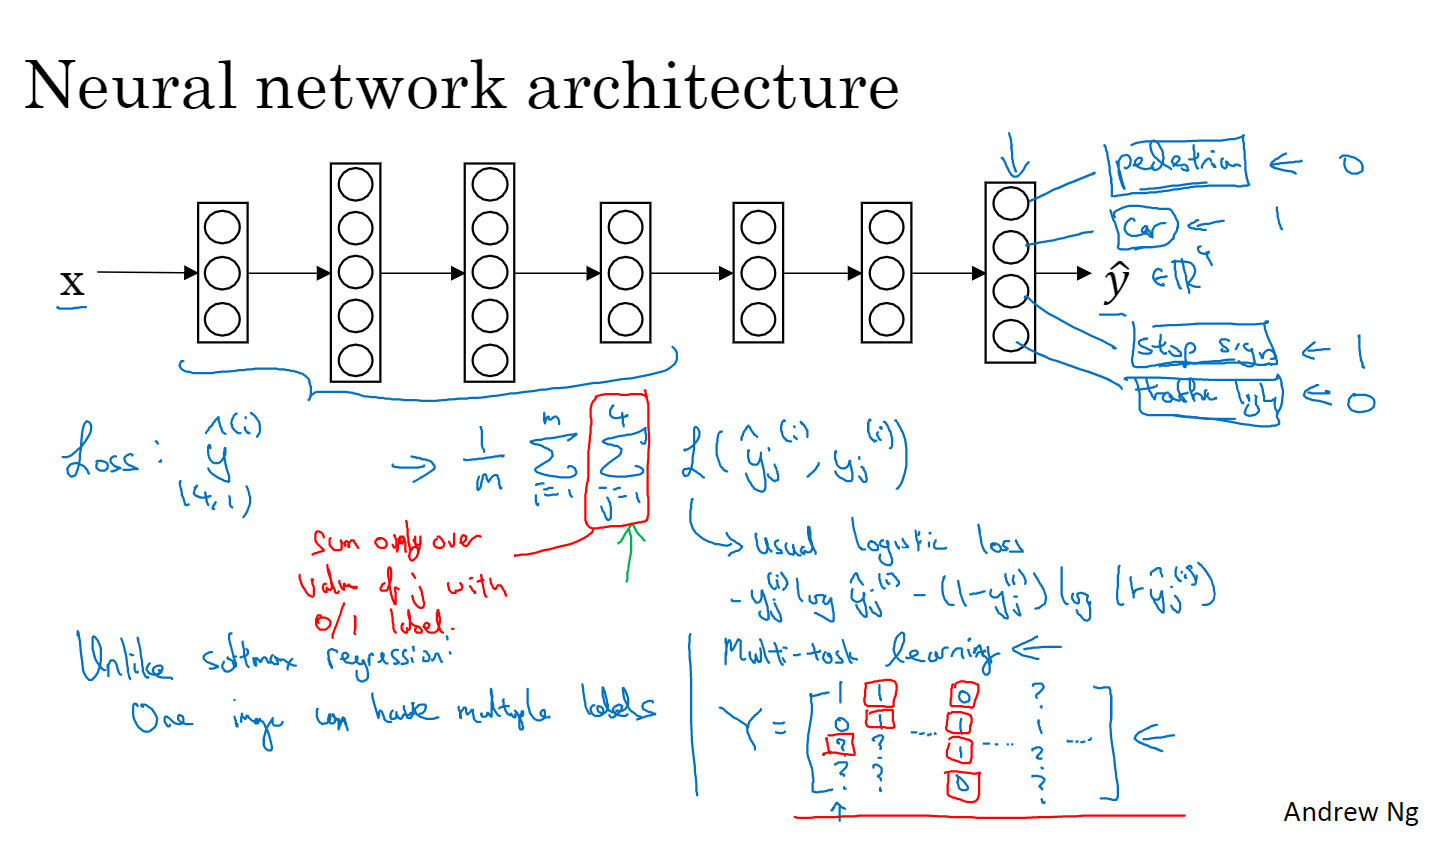 Neural network architecture
pedestrian ← 0
car ← 1
x
ŷ ∈ ℝ⁴
stop sign ← 1
← 0
Loss: ŷ^(i) → 1/m ∑_{i=1}^{m} ∑_{j=1}^{4} ℒ(ŷ_j^(i), y_j^(i))
(4,1)
sum only over
value of j with
0/1 label.
usual logistic loss
- y_j^(i) log ŷ_j^(i) - (1-y_j^(i)) log (1-ŷ_j^(i))
Unlike softmax regression:
One image can have multiple labels
Multi-task learning ←
1 1 0 ?
0 1 .... 1 1 ....
Y = [ ? ? 1 .... ? ] ←
? ? 0 ?
Andrew Ng